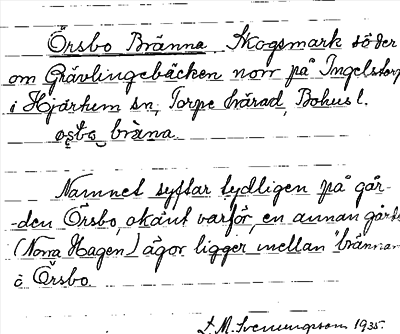 Örsbo Bränna. Skogsmark söder
om Grävlingebäcken norr på Ingelstorp
i Hjärtum sn, Torpe härad, Bohusl.
bräna.
Namnet syftar tydligen på går-
-den Örsbo, okänt varför, en annan gårds
(Norra Hagen) ägor ligger mellan "brännan"
o Örsbo.
J. M. Svenungsson 1935.